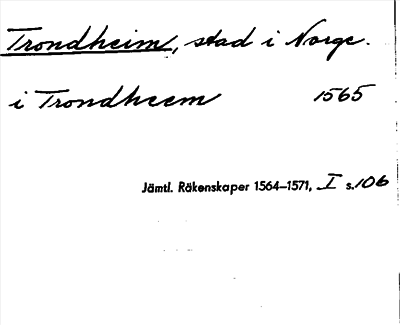 Trondheim, stad i Norge.
i Trondheem 1565
Jämtl. Räkenskaper 1564–1571, I s.106